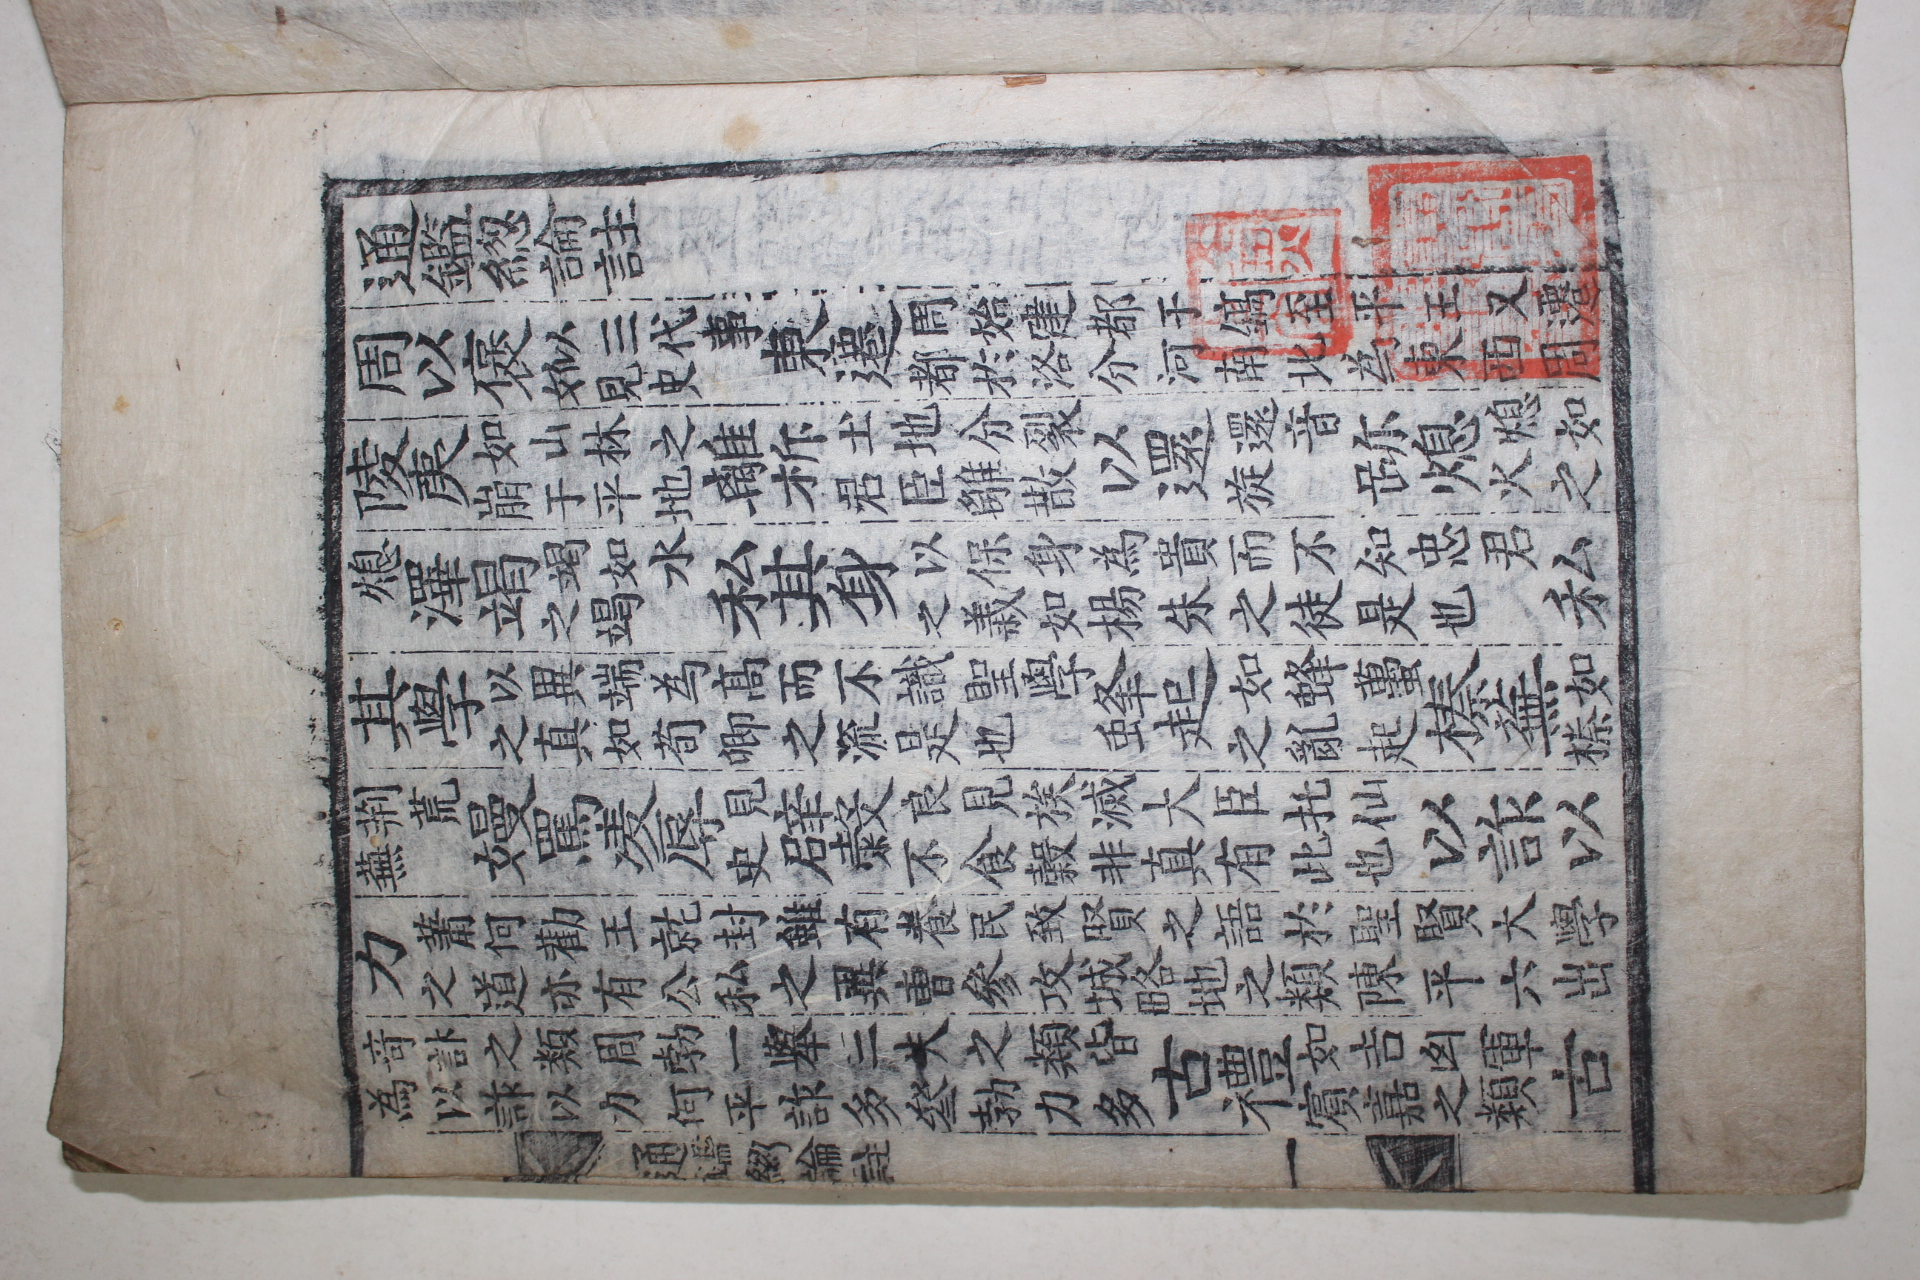 通鑑緫論註
周以褒姒三代事見史東遷周始建都于鎬至平王又遷都於洛分河南北為東西周
陵夷如山林之崩于平地離析土地分裂君臣離散以還還音旋跡熄熄如火之
熄澤竭竭如水之竭私其身以保身為貴而不知忠君之義如楊朱之徒是也私
其學以異端為高而不識聖學之真如荀卿之流是也蜂起如蜂蠆之亂起榛蕪如榛
荆荒蕪嫚罵凌辱見史辟糓良見族滅大臣托仙不食穀非真有此也以詐以
力蕭何勸王就封雖有養民致賢之語於聖賢大學之道亦有公私之異曹參攻城略地之類陳平六出
奇計之類周勃一舉二失之類皆為以詐以力何平詐多參勃力多古禮如吉凶軍賓嘉之類古
通鑑緫論註 一